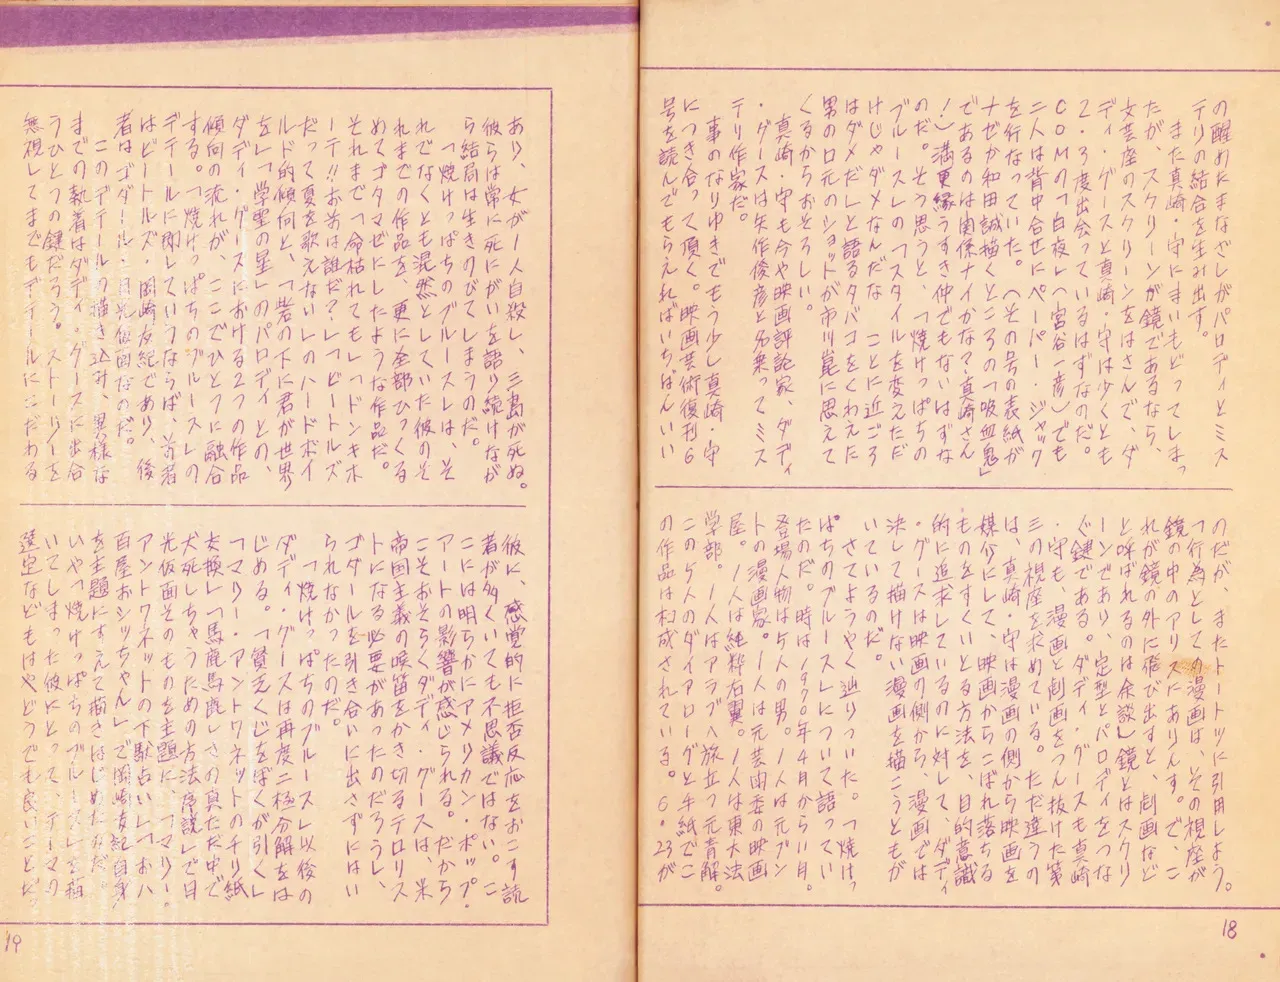 の醒めたまなざしがパロディとミス
テリの結合を生み出す。
また真崎・守にまいもどってしまっ
たが、スクリーンが鏡であるなら、
女芸座のスクリーンをはさんで、ダ
ディ・グースと真崎・守は少くとも
2・3度出会っているはずなのだ。
COMの「白夜」〈宮谷一彦〉でも
二人は背中合せにペーパー・ジャック
を行なっていた。(その号の表紙が
ナゼか和田誠描くところの「吸血鬼」
であるのは関係ナイかな?真崎さん
!)満更縁うすき仲でもないはずな
のだ。そう思うと、「焼けっぱちの
ブルースレの「スタイルを変えただ
けじゃダメなんだな ことに近ごろ
はダメだ」と語るタバコをくわえた
男の口元のショットが市川崑に思えて
くるからおそろしい。
真崎・守も今や映画評論家、ダディ
・グースは矢作俊彦と名乗ってミス
テリ作家だ。
事のなりゆきでもう少し真崎・守
につき合って頂く。映画芸術復刊6
号を読んでもらえればいちばんいい
のだが、またトートツに引用しよう。
「行為としての漫画は、その視座が
鏡の中のアリスにありんす。で、こ
れが鏡の外に飛び出すと、劇画など
と呼ばれるのは余談」鏡とはスクリ
ーンであり、定型とパロディをつな
ぐ鍵である。ダディ・グースも真崎
・守も、漫画と劇画をつん抜けた第
三の視座を求めている。ただ違うの
は、真崎・守は漫画の側から映画を
媒介にして、映画からこぼれ落ちる
ものをすくいとる方法を、目的意識
的に追求しているのに対して、ダディ
・グースは映画の側から、漫画では
決して描けない漫画を描こうともが
いているのだ。
さてようやく辿りついた。「焼けっ
ぱちのブルースレについて語ってい
たのだ。時は1970年4月から11月。
登場人物は5人の男。1人は元ブン
トの漫画家。1人は元芸闘委の映画
屋。1人は純粋右翼。1人は東大法
学部。1人はアラブへ旅立つ元青解。
この5人のダイアローグと手紙でこ
の作品は構成されている。6・23が
あり、女が1人自殺し、三島が死ぬ。
彼らは常に死にがいを語り続けなが
ら結局は生きのびてしまうのだ。
「焼けっぱちのブルースレは、そ
れでなくとも混然としていた彼のそ
れまでの作品を、更に全部ひっくる
めてゴタマゼにしたような作品だ。
それまで「命枯れてもレ「ドンキホ
ーテ!!お前は誰だ?レ「ビートルズ
だって夏を歌えないレのハードボイ
ルド的傾向と、「砦の下に君が世界
をレ「学聖の星」のパロディとの、
ダディ・グースにおける2つの作品
傾向の流れが、ここでひとつに融合
する。「焼けっぱちのブルースレの
デテールに即していうならば、前者
はビートルズ・岡崎友紀であり、後
者はゴダール・月光仮面なのだ。
このデテールの描き込み、異様な
までの執着はダディ・グースに出合
うひとつの鍵だろう。ストーリーを
無視してまでもデテールにこだわる
彼に、感覚的に拒否反応をおこす読
者が多くいても不思議ではない。こ
こには明らかにアメリカン・ポップ・
アートの影響が感じられる。だから
こそおそらくダディ・グースは、米
帝国主義の喉笛をかき切るテロリス
トになる必要があったのだろうし、
ゴダールを引き合いに出さずにはい
られなかったのだ。
「焼けっぱちのブルースレ以後の
ダディ・グースは再度二極分解をは
じめる。「貧乏くじをぼくが引くレ
「マリー・アントワネットのチリ紙
交換レ「馬鹿馬鹿しさの真ただ中で
犬死しちゃうための方法序説レで月
光仮面そのものを主題に、「マリー・
アントワネットの下駄占いレ「おハ
百屋おシッちゃんレで岡崎友紀自身
を主題にすえて描きはじめたのだ。
いや「焼けっぱちのブルースレを描
いてしまった彼にとって、テーマの
選定などもはやどうでも良いことだ
18
19